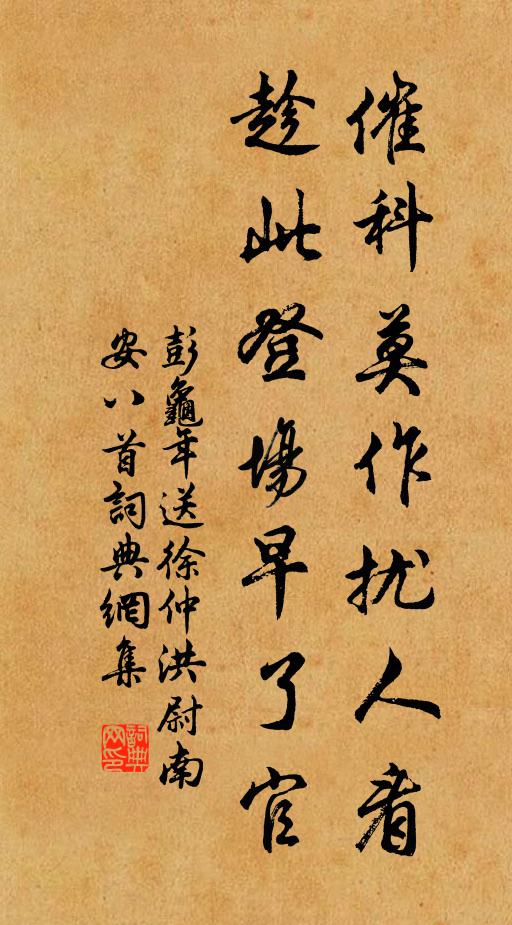 催科莫作扰人看
趁此登場早了官
彭龜年送徐仲洪尉南
安八首詞典網集
詞典
网印